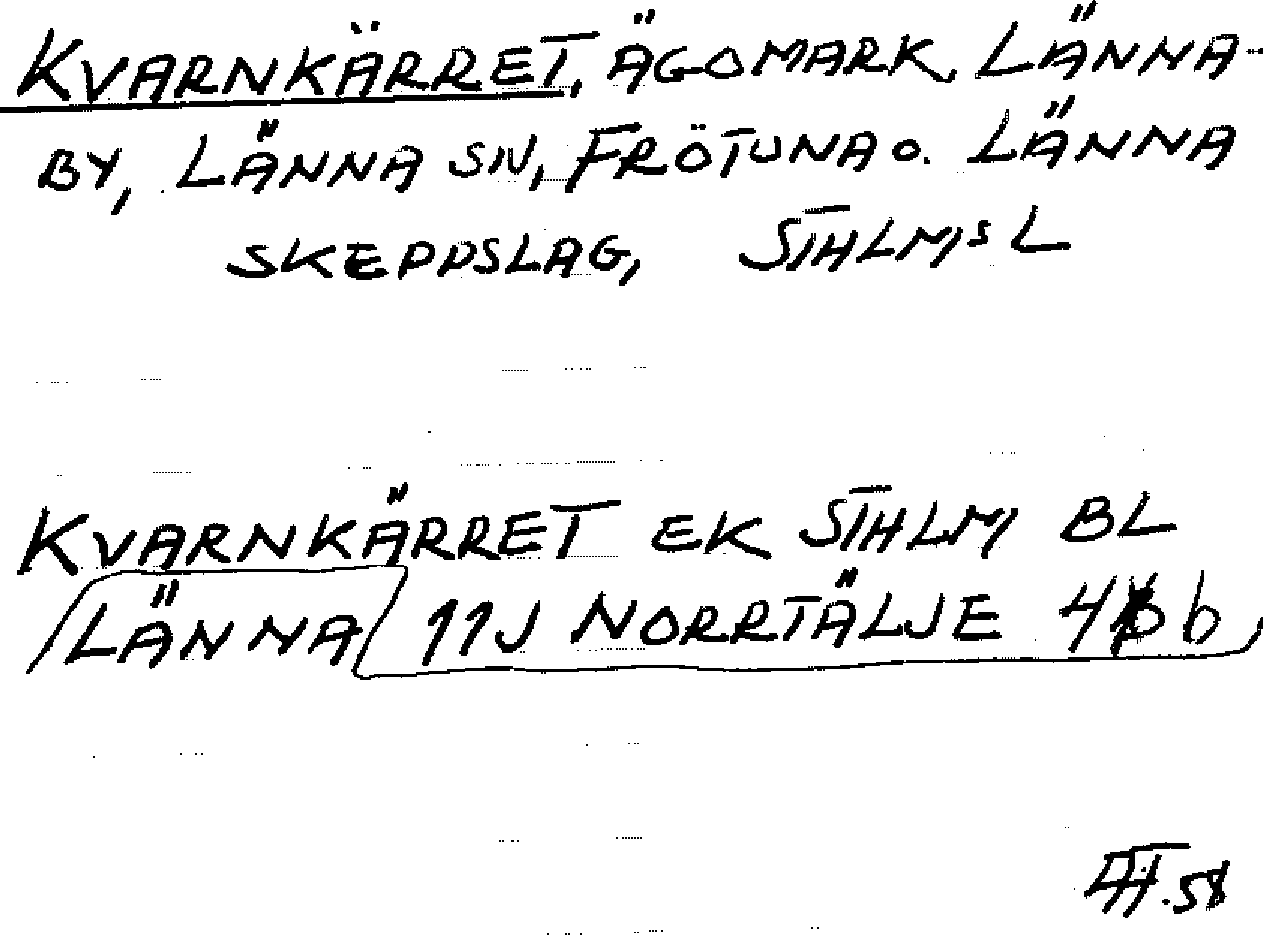 KVARNKÄRRET, ÄGOMARK, LÄNNA-
BY, LÄNNA SN, FRÖTUNA O. LÄNNA
SKEPPSLAG, STHLMS L
KVARNKÄRRET EK STHLM BL
LÄNNA 11J NORRTÄLJE 4 b